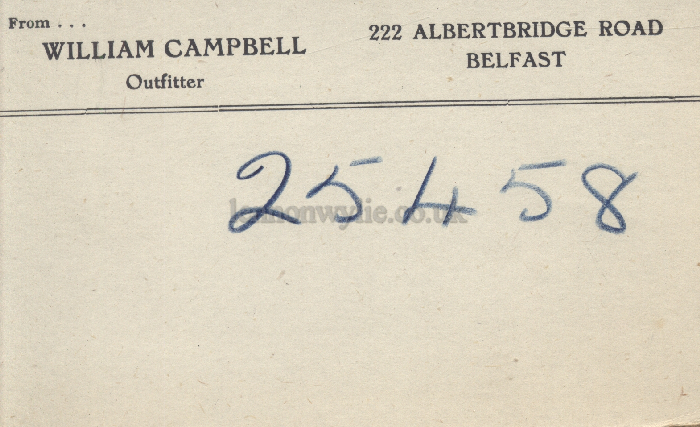 From . . .
WILLIAM CAMPBELL
Outfitter
222 ALBERTBRIDGE ROAD
BELFAST
25458
lennonwylie.co.uk